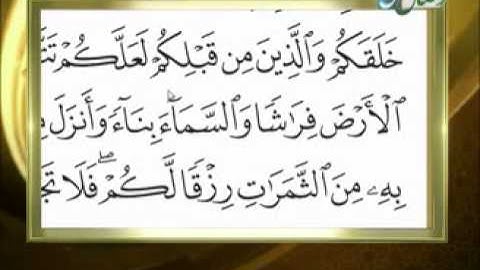 خَلَقَكُمْ وَٱلَّذِينَ مِن قَبْلِكُمْ لَعَلَّكُمْ
ٱلْأَرْضَ فِرَٰشًا وَٱلسَّمَآءَ بِنَآءً وَأَنزَلَ
بِهِۦ مِنَ ٱلثَّمَرَٰتِ رِزْقًا لَّكُمْ ۖ فَلَا